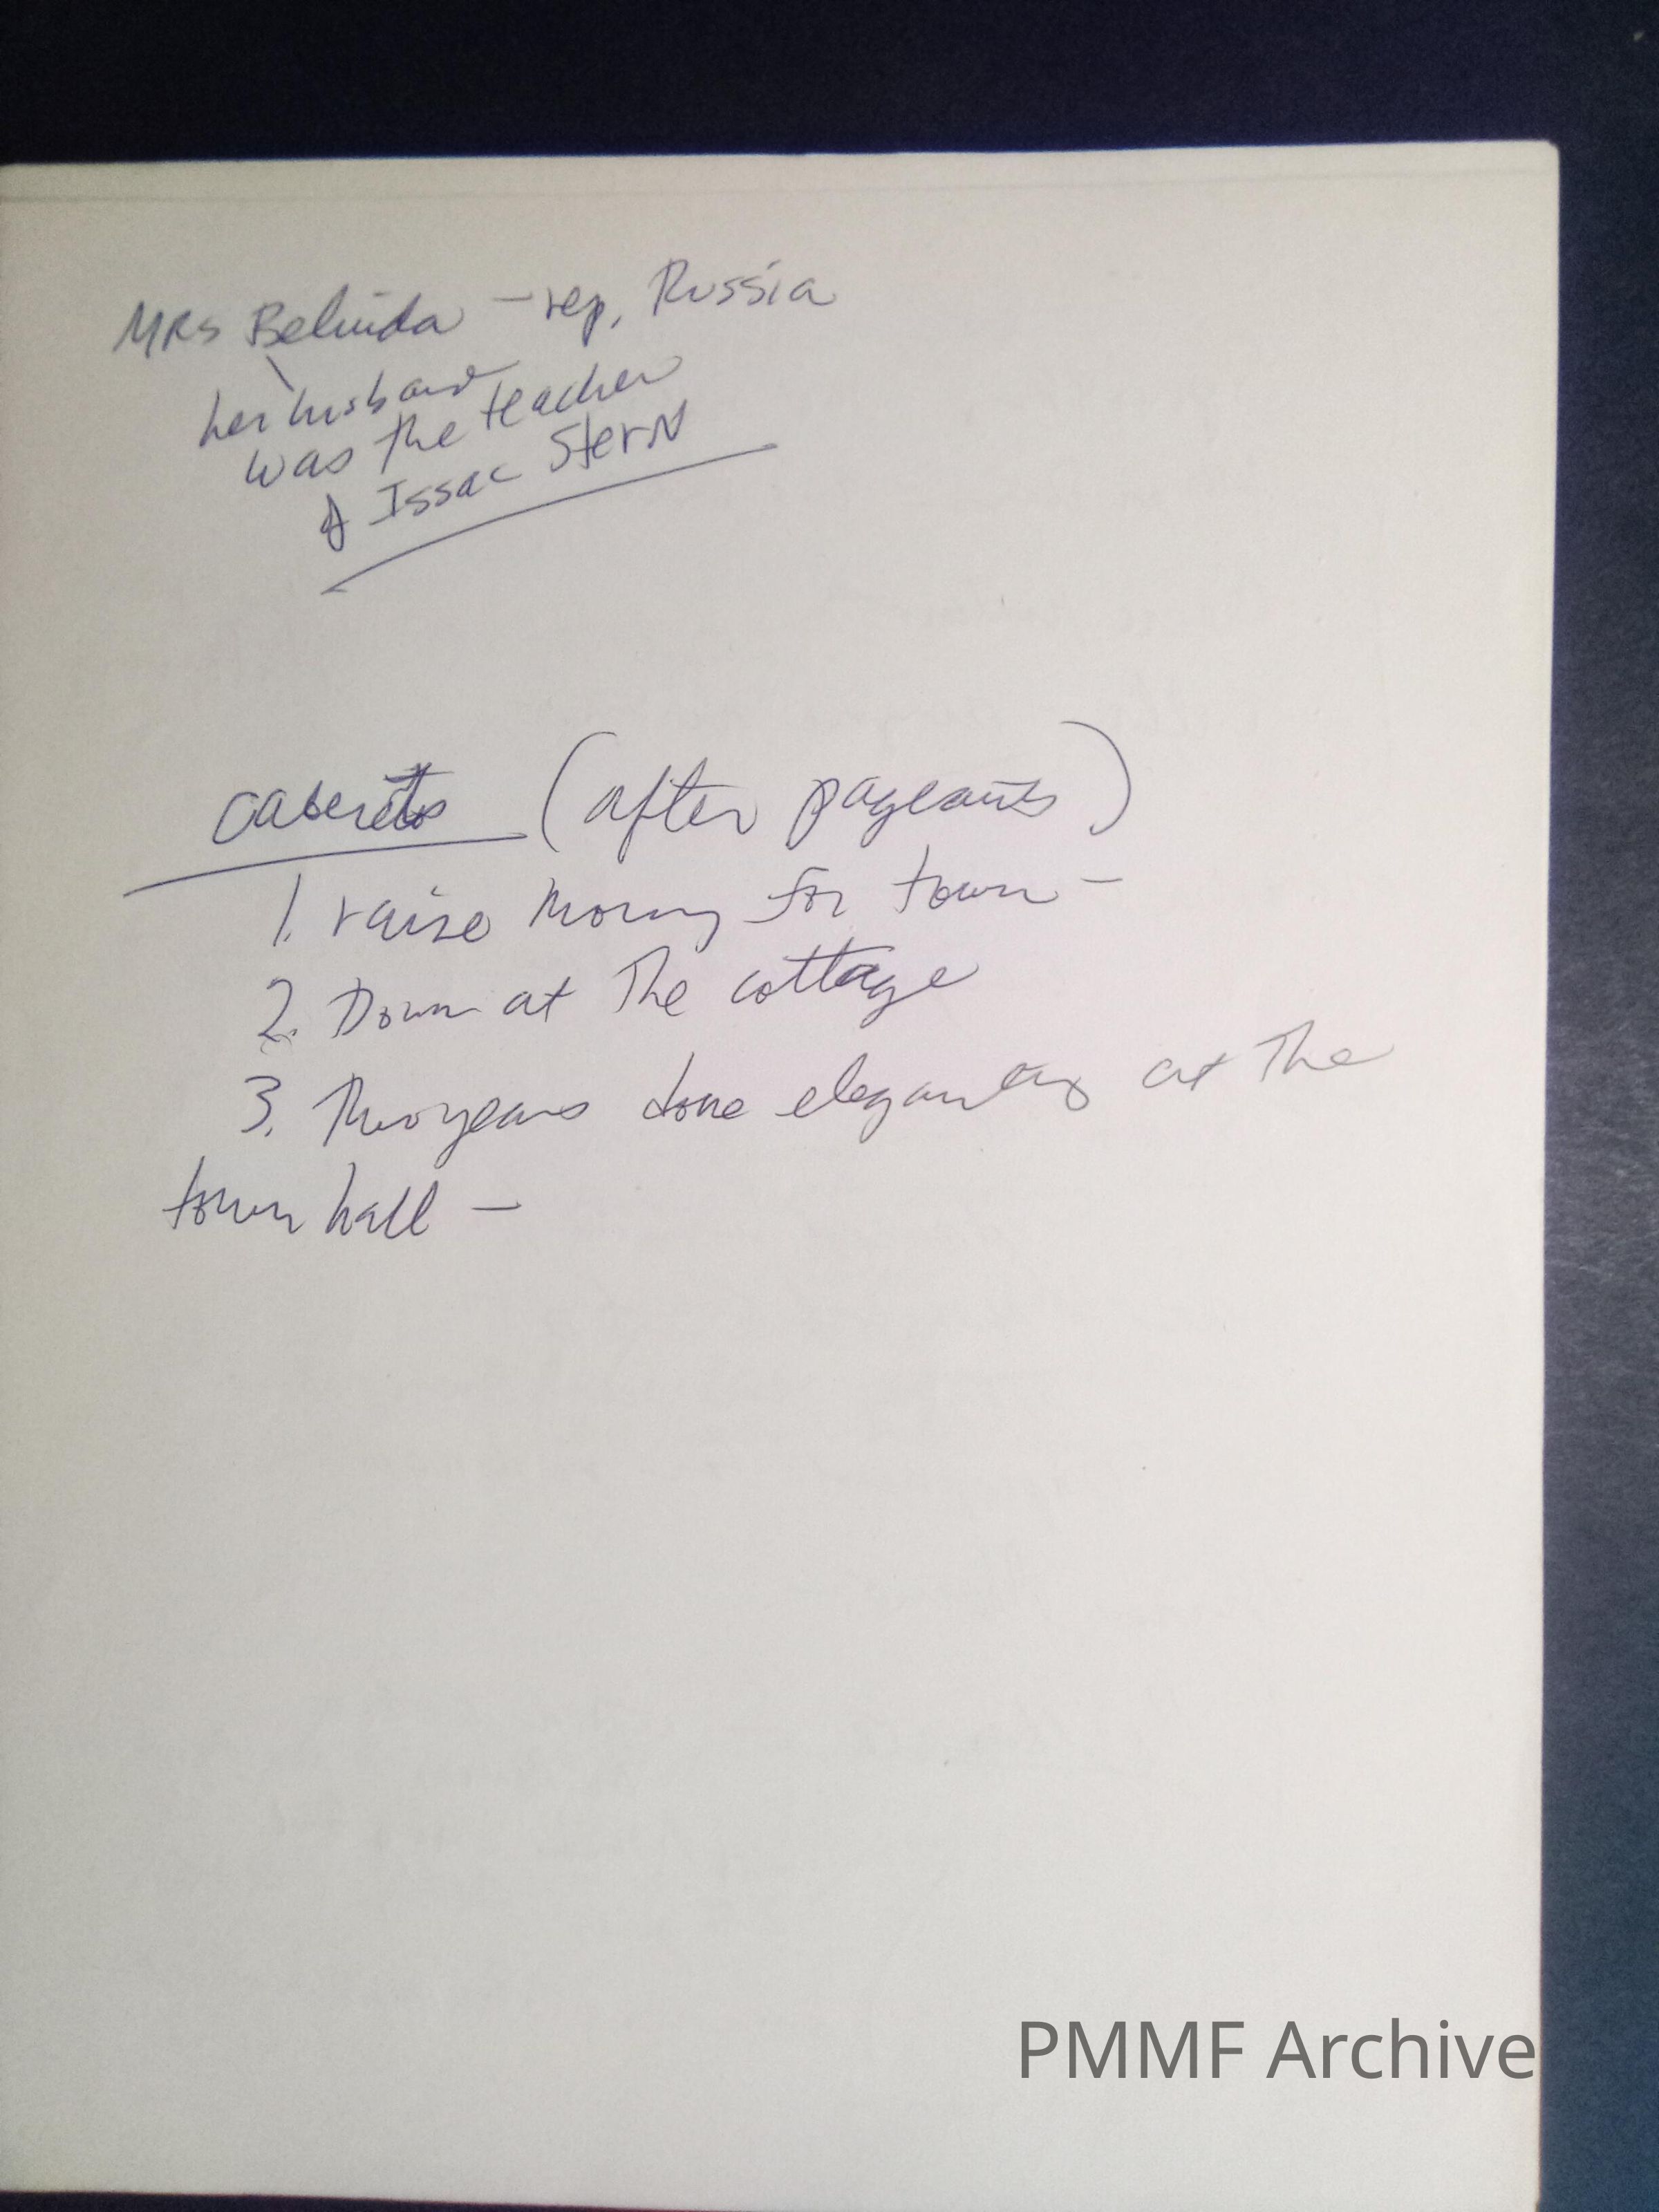 MRS Belinda - rep, Russia
her husband
was the teacher
of Issac Stern
Caberets (after pageants)
1. raise money for town -
2. Down at the cottage
3. Two years done elegantly at the
town hall -
PMMF Archive